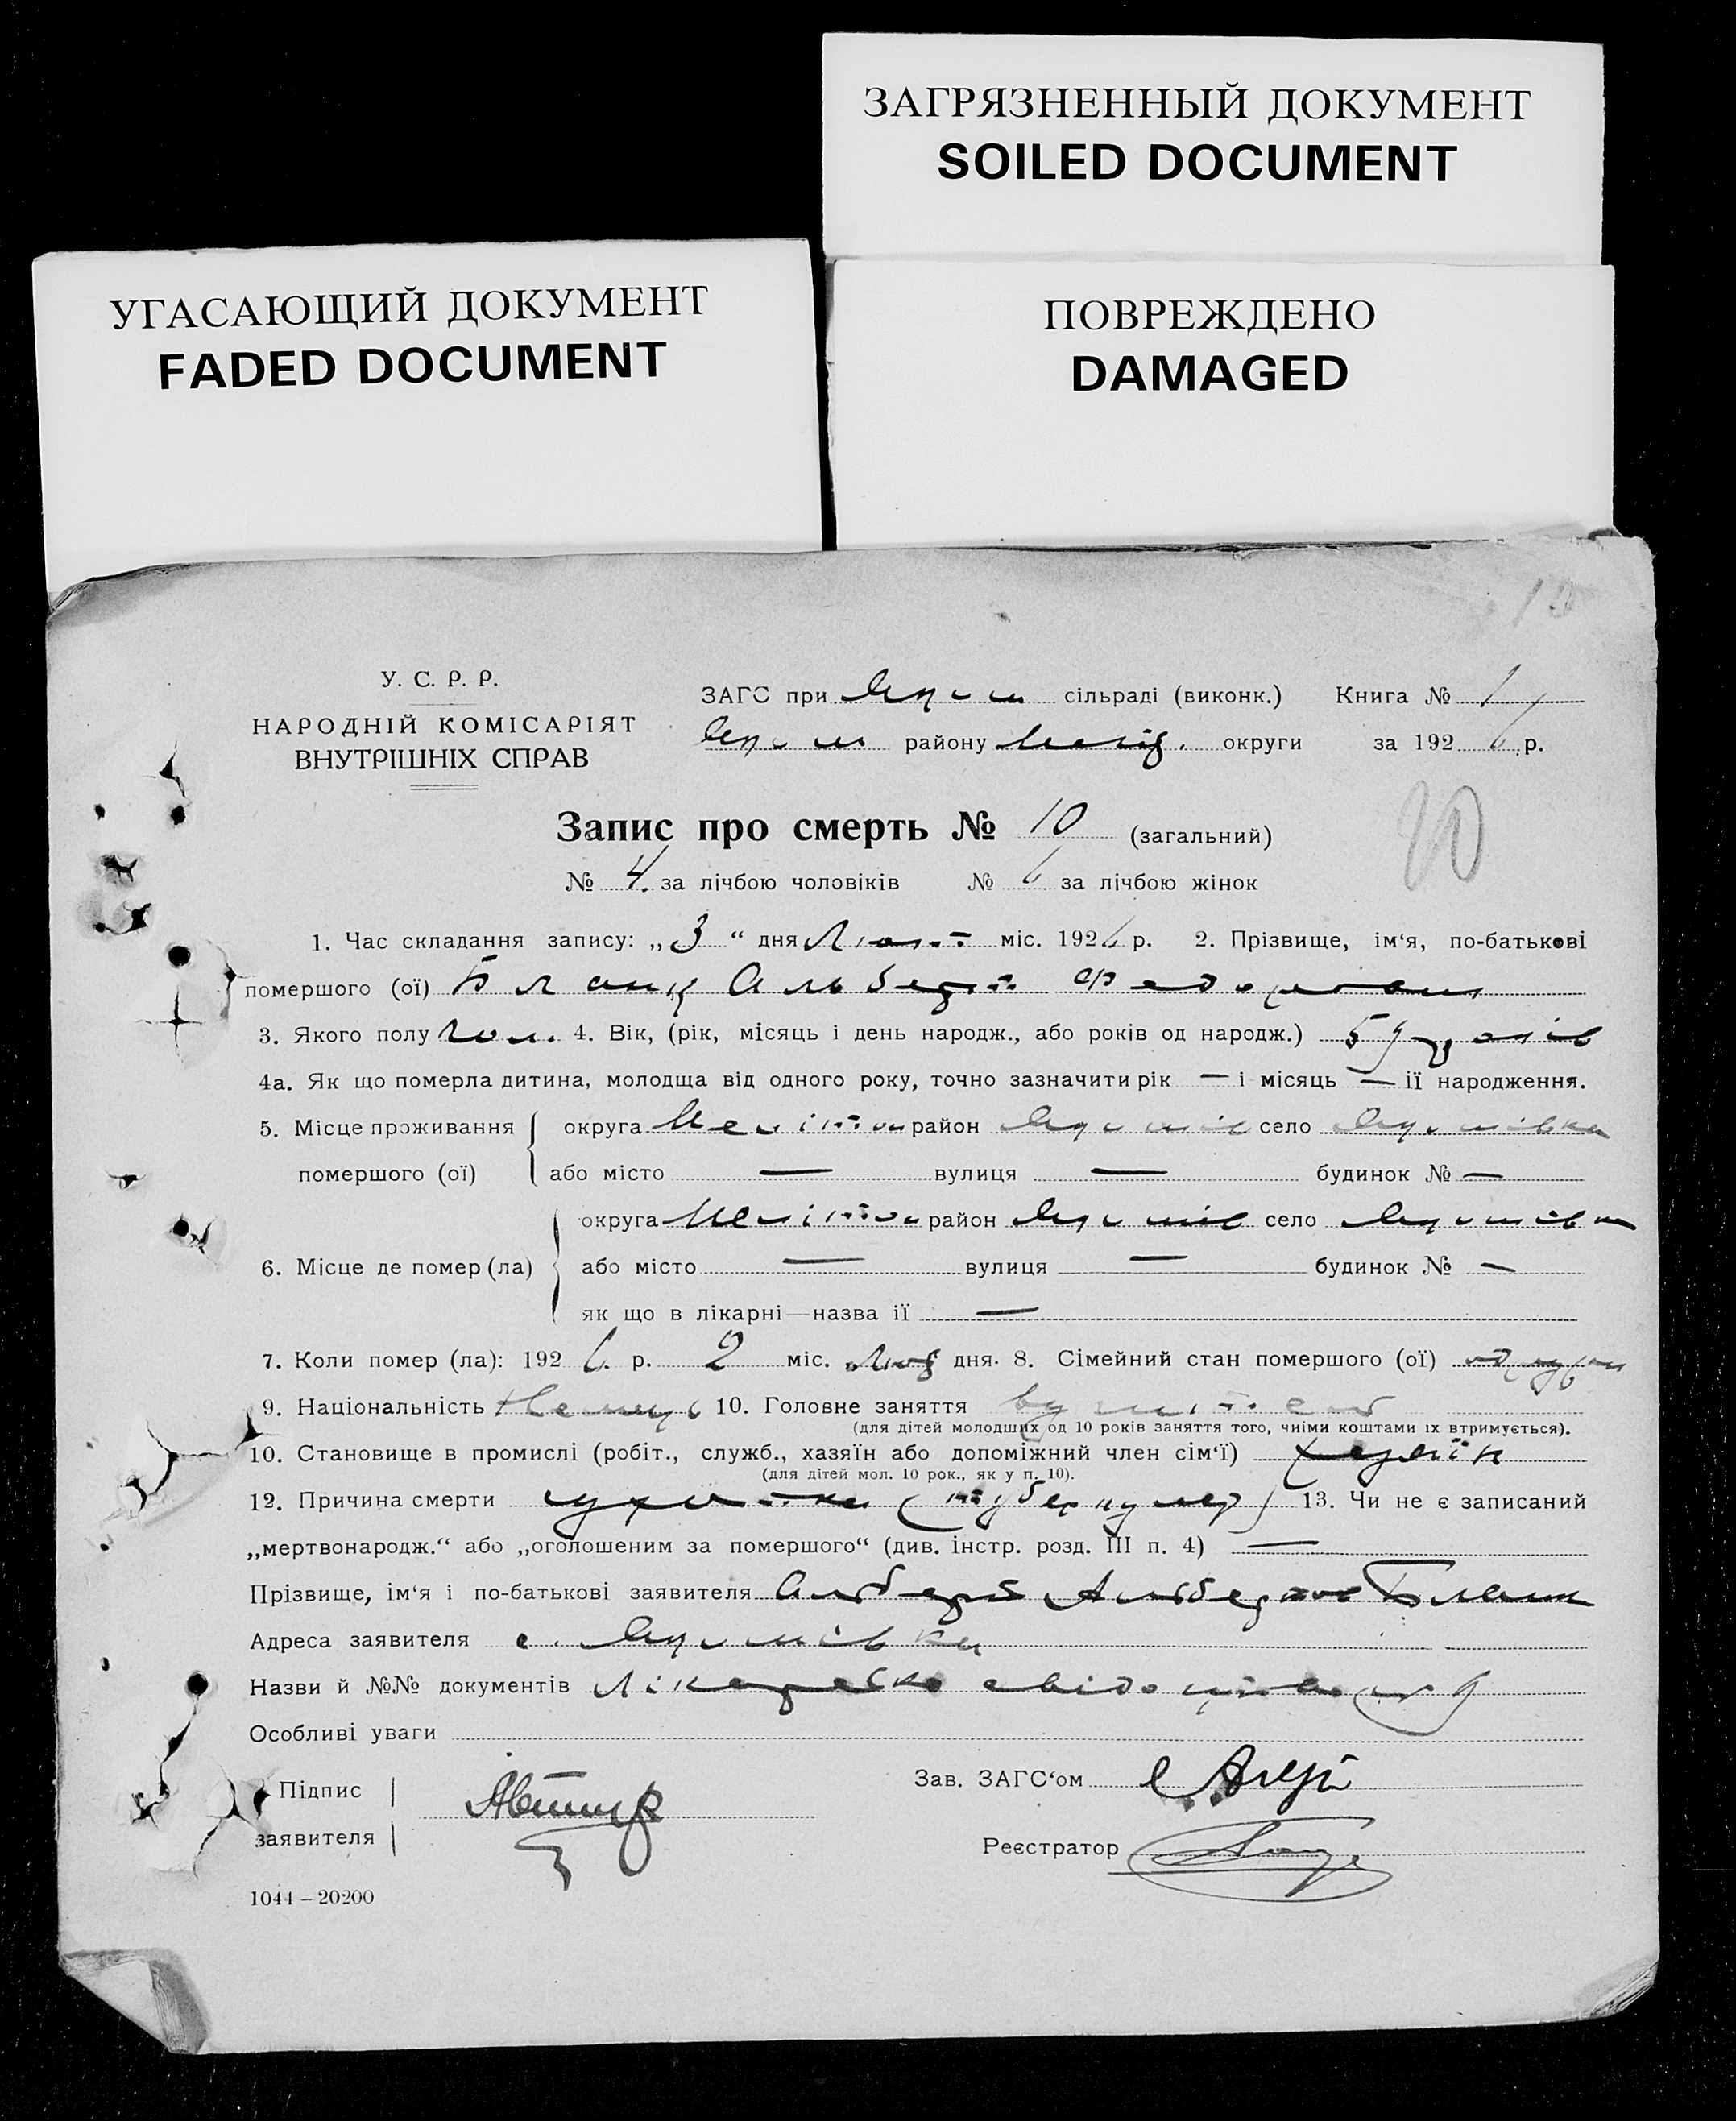 ЗАГРЯЗНЕННЫЙ ДОКУМЕНТ
SOILED DOCUMENT
УГАСАЮЩИЙ ДОКУМЕНТ
FADED DOCUMENT
ПОВРЕЖДЕНО
DAMAGED
10
У. С. Р. Р.
НАРОДНІЙ КОМІСАРІЯТ
ВНУТРІШНІХ СПРАВ
ЗАГС при сільраді (виконк.) Книга № 1
району округи за 1926 р.
Запис про смерть № 10 (загальний)
10
№ 4. за лічбою чоловіків № 6 за лічбою жінок
1. Час складання запису: „3“ дня Лют. міс. 1926 р. 2. Прізвище, ім'я, по-батькові
помершого (ої) Бланк Альберт Федорович
3. Якого полу Чол. 4. Вік, (рік, місяць і день народж., або років од народж.) 59 років
4а. Як що померла дитина, молодща від одного року, точно зазначити рік — і місяць — ії народження.
5. Місце проживання помершого (ої)
округа Меліттоп район село
або місто — вулиця — будинок № —
6. Місце де помер (ла)
округа Меліттоп район село
або місто — вулиця — будинок № —
як що в лікарні—назва ії —
7. Коли помер (ла): 1926. р. 2 міс. Лют дня. 8. Сімейний стан помершого (ої)
9. Національність Немець 10. Головне заняття
(для дітей молодщих од 10 років заняття того, чиїми коштами їх втримується).
10. Становище в промислі (робіт., служб., хазяїн або допоміжний член сім'ї) хазяїн
(для дітей мол. 10 рок., як у п. 10).
12. Причина смерти сухотка (туберкульоз) 13. Чи не є записаний
„мертвонародж.“ або „оголошеним за помершого“ (див. інстр. розд. III п. 4) —
Прізвище, ім'я і по-батькові заявителя Альберт Альбертов Бланк
Адреса заявителя с.
Назви й №№ документів Лікарське свідоцтво № 9
Особливі уваги
Підпис
заявителя
Зав. ЗАГС'ом
Реєстратор
1044—20200